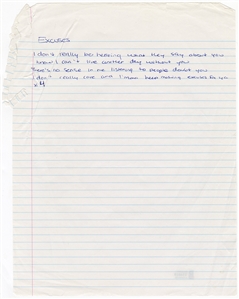 Excuses
I don't really like hearing what they say about you
know I can't live another day without you
there's no sense in me listening to people doubt you
I don't really care and I have been making excuses for you
x4